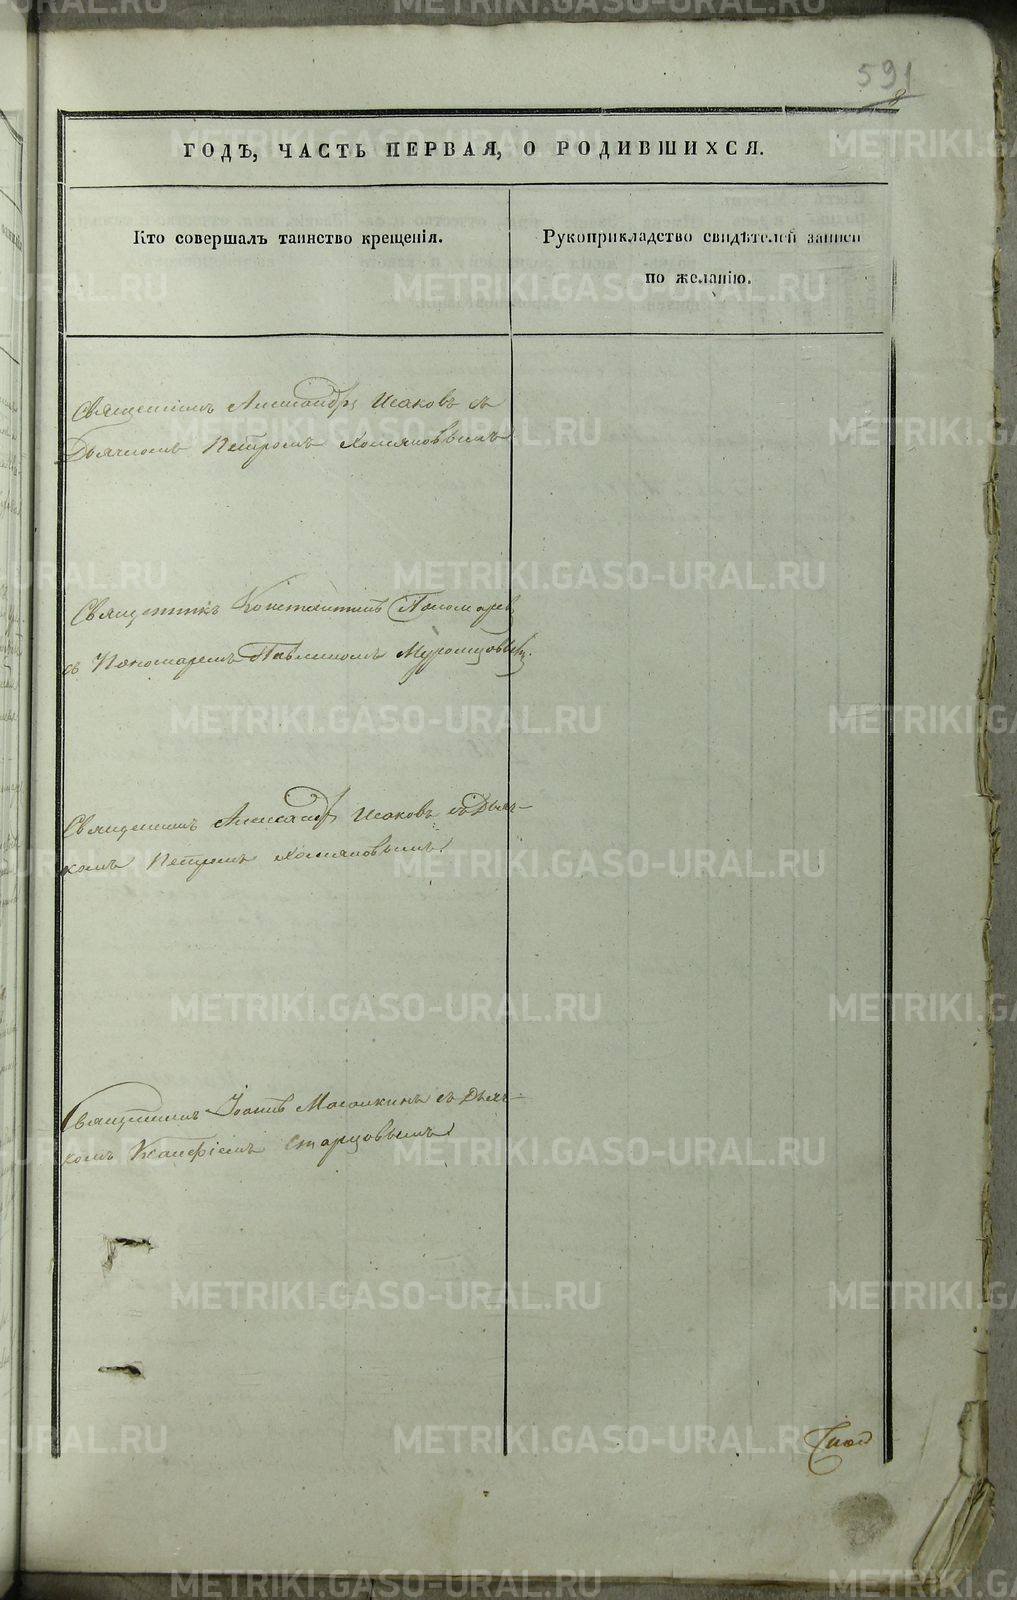 591
ГОДЪ, ЧАСТЬ ПЕРВАЯ, О РОДИВШИХСЯ.
Кто совершалъ таинство крещенія.
Рукоприкладство свидѣтелей записи
по желанію.
Священникъ Александръ Исаковъ съ
Дьячкомъ Петромъ Хомяковымъ
Священникъ Константинъ Пономаревъ
съ Пономаремъ Павлиномъ Муромцовымъ.
Священникъ Александръ Исаковъ съ Дьяч-
комъ Петромъ Хомяковымъ
Священникъ Іоаннъ Масалкинъ съ Дьяч-
комъ Старцовымъ
METRIKI.GASO-URAL.RU